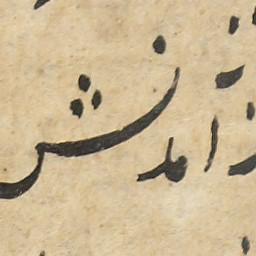 آمدنش